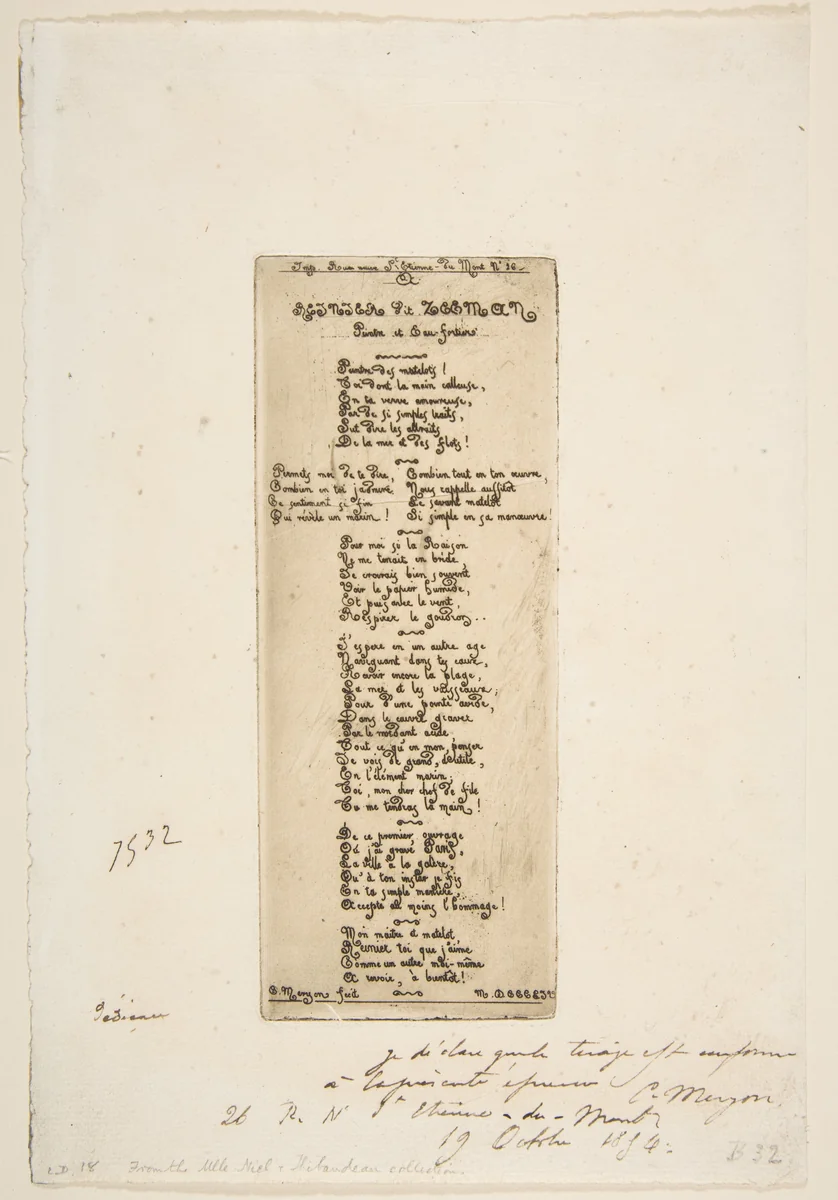 Imp. Rue neuve St Etienne-du Mont N° 26
A
REINIER dit ZEEMAN
Peintre et Eau-fortiers
Peintre des matelots !
Toi dont la main calleuse,
En ta verve amoureuse,
Par de si simples traits,
Sut dire les attraits
De la mer et des flots !
Permets moi de te dire,
Combien en toi j'admire
Ce sentiment si fin
Qui révèle un marin !
Combien tout en ton œuvre,
Nous rappelle aussitôt
Le savant matelot
Si simple en sa manœuvre !
Pour moi si la Raison
Ne me tenait en bride,
Je croirais bien souvent
Voir le papier humide,
Et puis avec le vent,
Respirer le goudron..
J'espere en un autre age
Naviguant dans tes eaux,
Revoir encore la plage,
La mer et les vaisseaux;
Pour d'une pointe avide,
Dans le cuivre graver
Par le mordant acide
Tout ce qu'en mon penser
Je vois de grand, d'utile,
En l'élément marin:
Toi, mon cher chef de file
Tu me tendras la main !
De ce premier ouvrage
Où j'ai gravé Paris,
La ville à la galère,
Qu'à ton instar je fis
En ta simple manière,
Accepte au moins l'hommage !
Mon maitre et matelot
Reynier toi que j'aime
Comme un autre moi-même
A revoir, à bientôt !
C. Meryon fecit
7532
je déclare que le tirage est conforme
à la présente épreuve C. Meryon.
26 R. N St Etienne-du-Mont
19 Octobre 1854.
B 32
L.D. 18 From the Mlle Niel & Thibaudeau collections